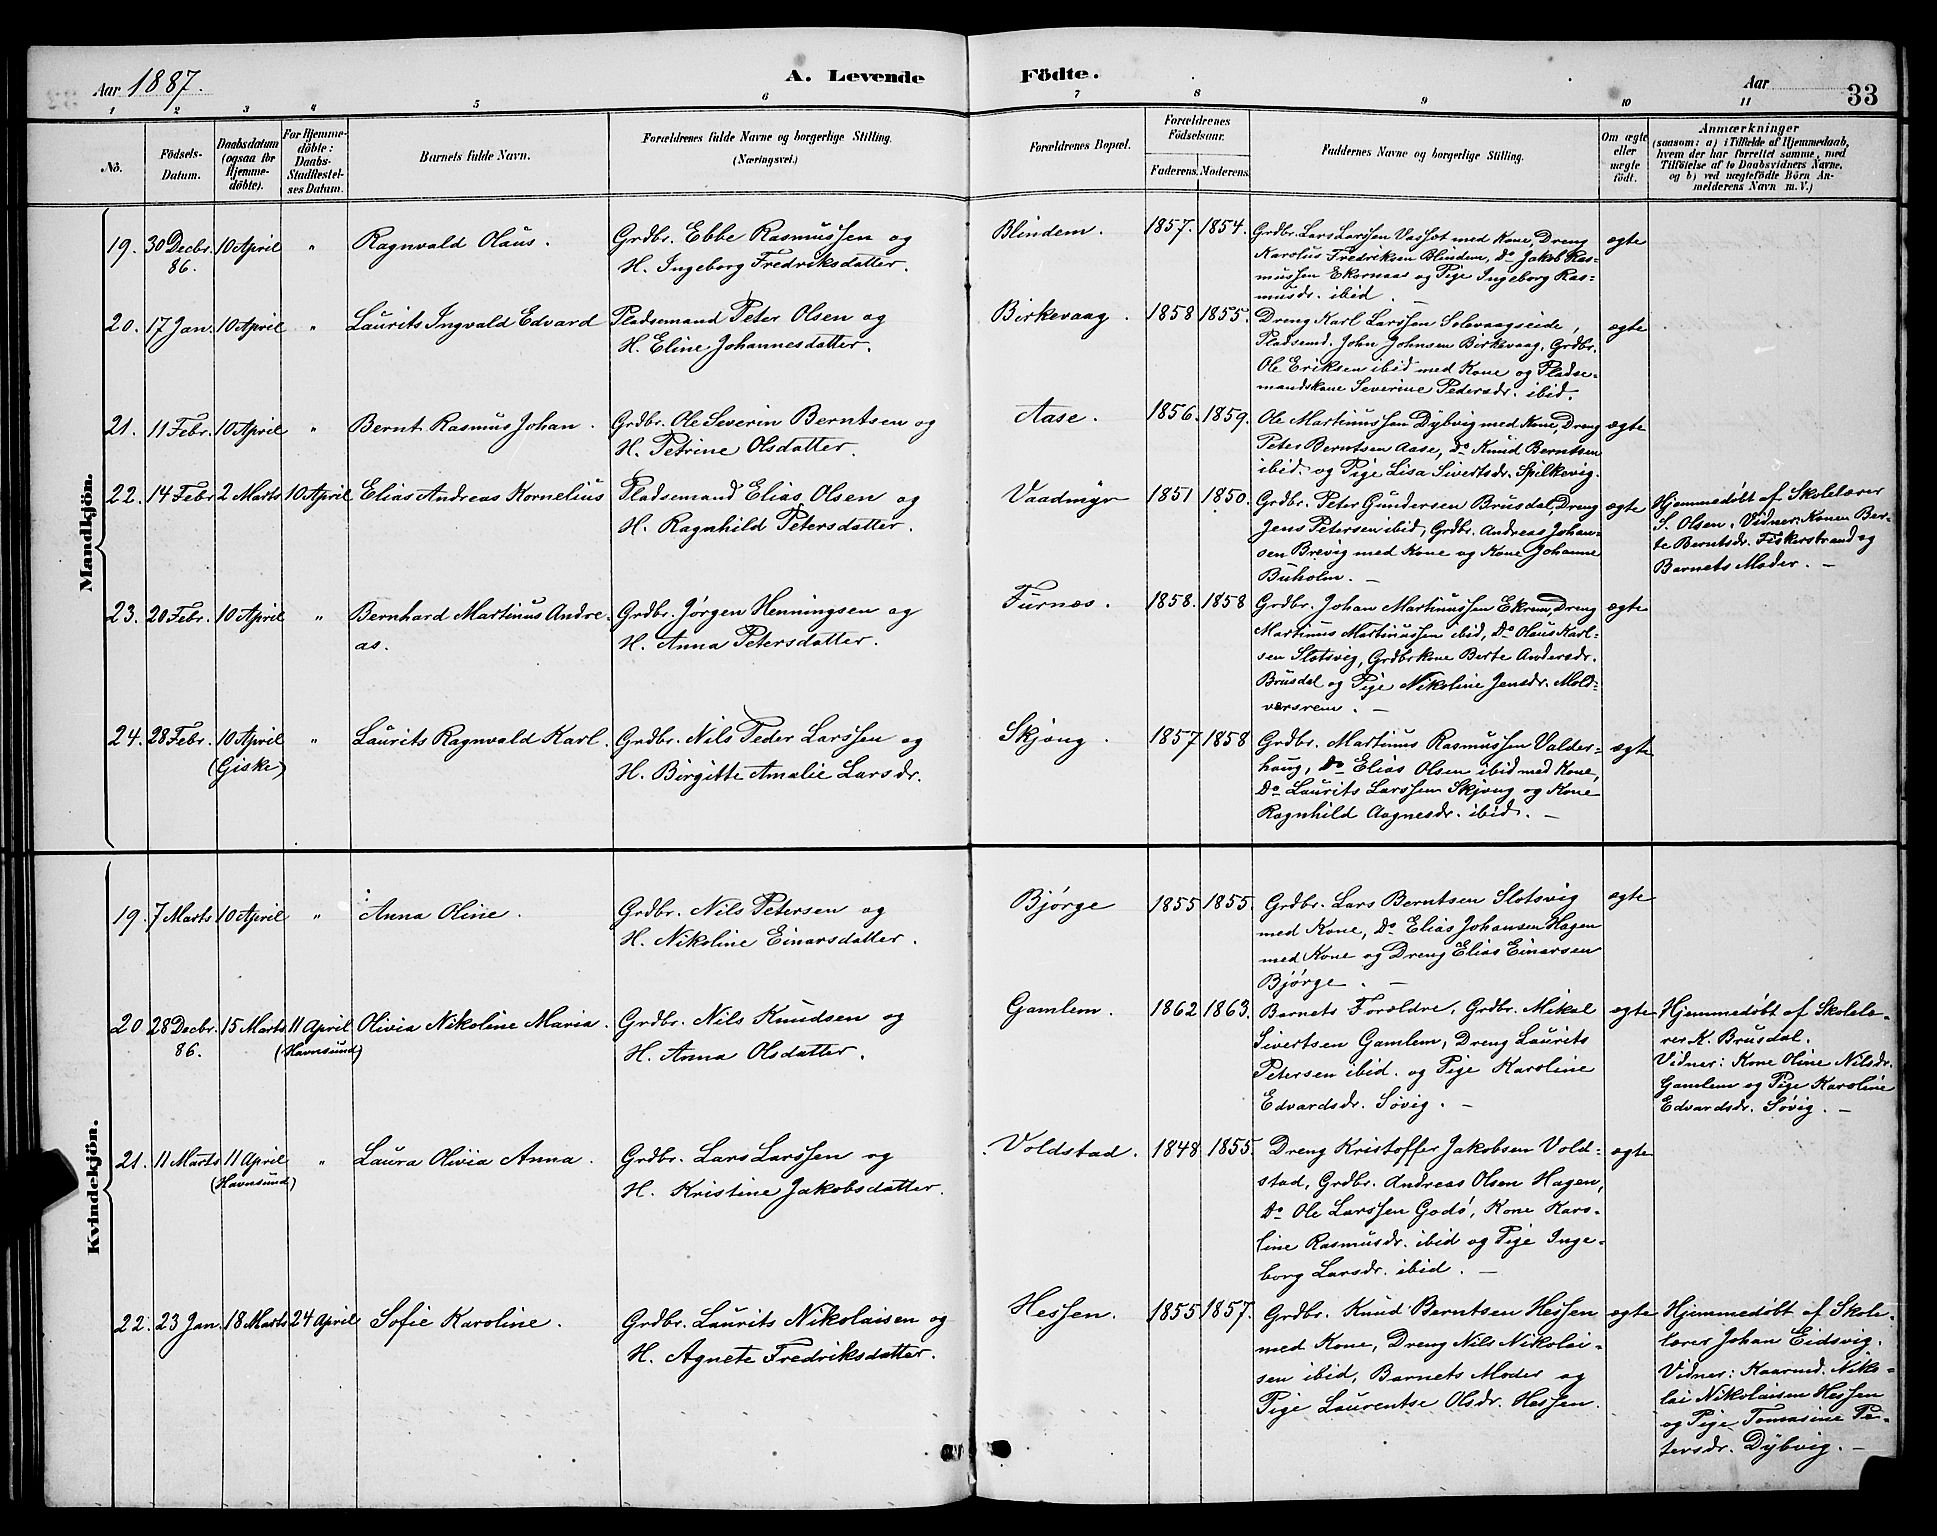 Aar 1887.
A. Levende Födte.
Aar
33
1 2 3 4 5 6 7 8 9 10 11
No.
Födsels-
Datum.
Daabsdatum
(ogsaa for
Hjemme-
döbte).
For Hjemme-
döbte:
Daabs-
Stadfæstel-
ses Datum.
Barnets fulde Navn.
Forældrenes fulde Navne og borgerlige Stilling.
(Næringsvei.)
Forældrenes Bopæl.
Forældrenes
Födselsaar.
Faderens. Moderens.
Faddernes Navne og borgerlige Stilling.
Om ægte
eller
uægte
født.
Anmærkninger
(saasom: a) i Tilfælde af Hjemmedaab,
hvem der har forrettet samme, med
Tilföielse af to Daabsvidners Navne,
og b) ved uægtefödte Börn An-
melderens Navn m.V.)
Mandkjön.
19. 30 Decbr. 10 April " Ragnvald Olaus. Grdbr. Ebbe Rasmussen og Blindem. 1857. 1854. Grdbr. Lars Larssen Vasset med Kone, Dreng ægte
86. H. Ingeborg Fredriksdatter. Karolus Fredriksen Blindem, Do Jakob Ras=
mussen Ekornaas og Pige Ingeborg Ras=
musdr. ibid. —
20. 17 Jan. 10 April " Laurits Ingvald Edvard Pladsemand Peter Olsen og Birkevaag. 1858 1855. Dreng Karl Larssen Solevaagseide, ægte
H. Eline Johannesdatter. Pladsemd. John Johnsen Birkevaag, Grdbr.
Ole Eriksen ibid med Kone og Pladse=
mandskone Severine Pedersdr. ibid.
21. 11 Febr. 10 April " Bernt Rasmus Johan. Grdbr. Ole Severin Berntsen og Aase. 1856. 1859. Ole Martinussen Dybvig med Kone, Dreng ægte
H. Petrine Olsdatter. Peter Berntsen Aase, Do Knud Berntsen
ibid. og Pige Lisa Sivertsdr. Spilkevig.
22. 14 Febr 2 Marts 10 April Elias Andreas Kornelius Pladsemand Elias Olsen og Vaadmyr 1851 1850. Grdbr. Peter Gundersen Brusdal, Dreng ægte Hjemmedøbt af Skolelærer
H. Ragnhild Petersdatter. Jens Petersen ibid, Grdbr. Andreas Johan= S. Olsen. Vidner: Konen Ber=
sen Brevig med Kone og Kone Johanne te Berntsdr. Fiskerstrand og
Buholm. — Barnets Moder. —
23. 20 Febr. 10 April " Bernhard Martinus Andre= Grdbr. Jørgen Henningsen og Furnæs. 1858. 1858 Grdbr. Johan Martinussen Ekrem, Dreng ægte
as. H. Anna Petersdatter. Martinus Martinussen ibid, Do Olaus Karl=
sen Slotsvig, Grdbrkone Berte Andersdr.
Brusdal og Pige Nikoline Jensdr. Mold=
værsrem. —
24. 28 Febr. 10 April " Laurits Ragnvald Karl. Grdbr. Nils Peder Larssen og Skjong. 1857 1858 Grdbr. Martinus Rasmussen Valder= ægte
(Giske) H. Birgitte Amalie Larsdr. haug, Do Elias Olsen ibid med Kone,
Do Laurits Larssen Skjong og Kone
Ragnhild Aagnesdr. ibid. —
Kvindekjön.
19. 7 Marts 10 April " Anna Oline. Grdbr. Nils Petersen og Bjørge 1855 1855. Grdbr. Lars Berntsen Slotsvig ægte
H. Nikoline Einarsdatter. med Kone, Do Elias Johansen Hagen
med Kone og Dreng Elias Einarsen
Bjørge. —
20 28 Decbr. 15 Marts 11 April Olivia Nikoline Maria. Grdbr. Nils Knudsen og Gamlem. 1862 1863. Barnets Forældre, Grdbr. Mikal ægte Hjemmedøbt af Skolelæ=
86. (Havnsund) H. Anna Olsdatter. Sivertsen Gamlem, Dreng Laurits rer K. Brusdal.
Petersen ibid. og Pige Karoline Vidner: Kone Oline Nilsdr.
Edvardsdr. Søvig. — Gamlem og Pige Karoline
Edvardsdr. Søvig. —
21. 11 Marts 11 April " Laura Olivia Anna. Grdbr. Lars Larssen og Voldstad. 1848 1855. Dreng Kristoffer Jakobsen Vold= ægte
(Havnsund) H. Kristine Jakobsdatter. stad, Grdbr. Andreas Olsen Hagen,
Do Ole Larssen Godø, Kone Karo=
line Rasmusdr. ibid og Pige Inge=
borg Larsdr. ibid. —
22. 23 Jan. 18 Marts 24 April Sofie Karoline. Grdbr. Laurits Nikolaisen og Hessen. 1855 1857. Grdbr. Knud Berntsen Hessen ægte Hjemmedøbt af Skole=
H. Agnete Fredriksdatter. med Kone, Dreng Nils Nikolai= lærer Johan Eidsvig.
sen ibid, Barnets Moder og Vidner: Kaarmd. Niko=
Pige Laurentse Olsdr. Hessen. lai Nikolaisen Hessen
og Pige Tomasine Pe=
tersdr. Dybvig. —